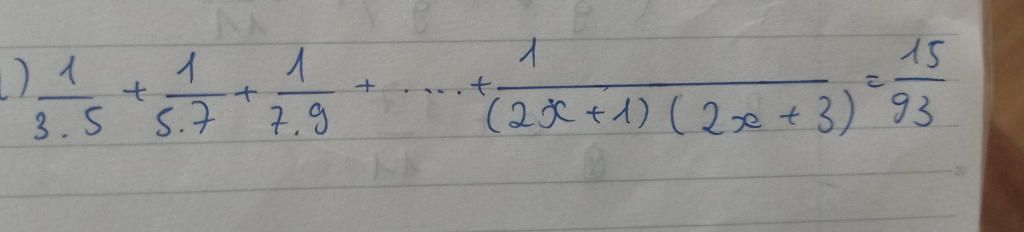 1/(3.5) + 1/(5.7) + 1/(7.9) + ..... + 1/((2x+1)(2x+3)) = 15/93